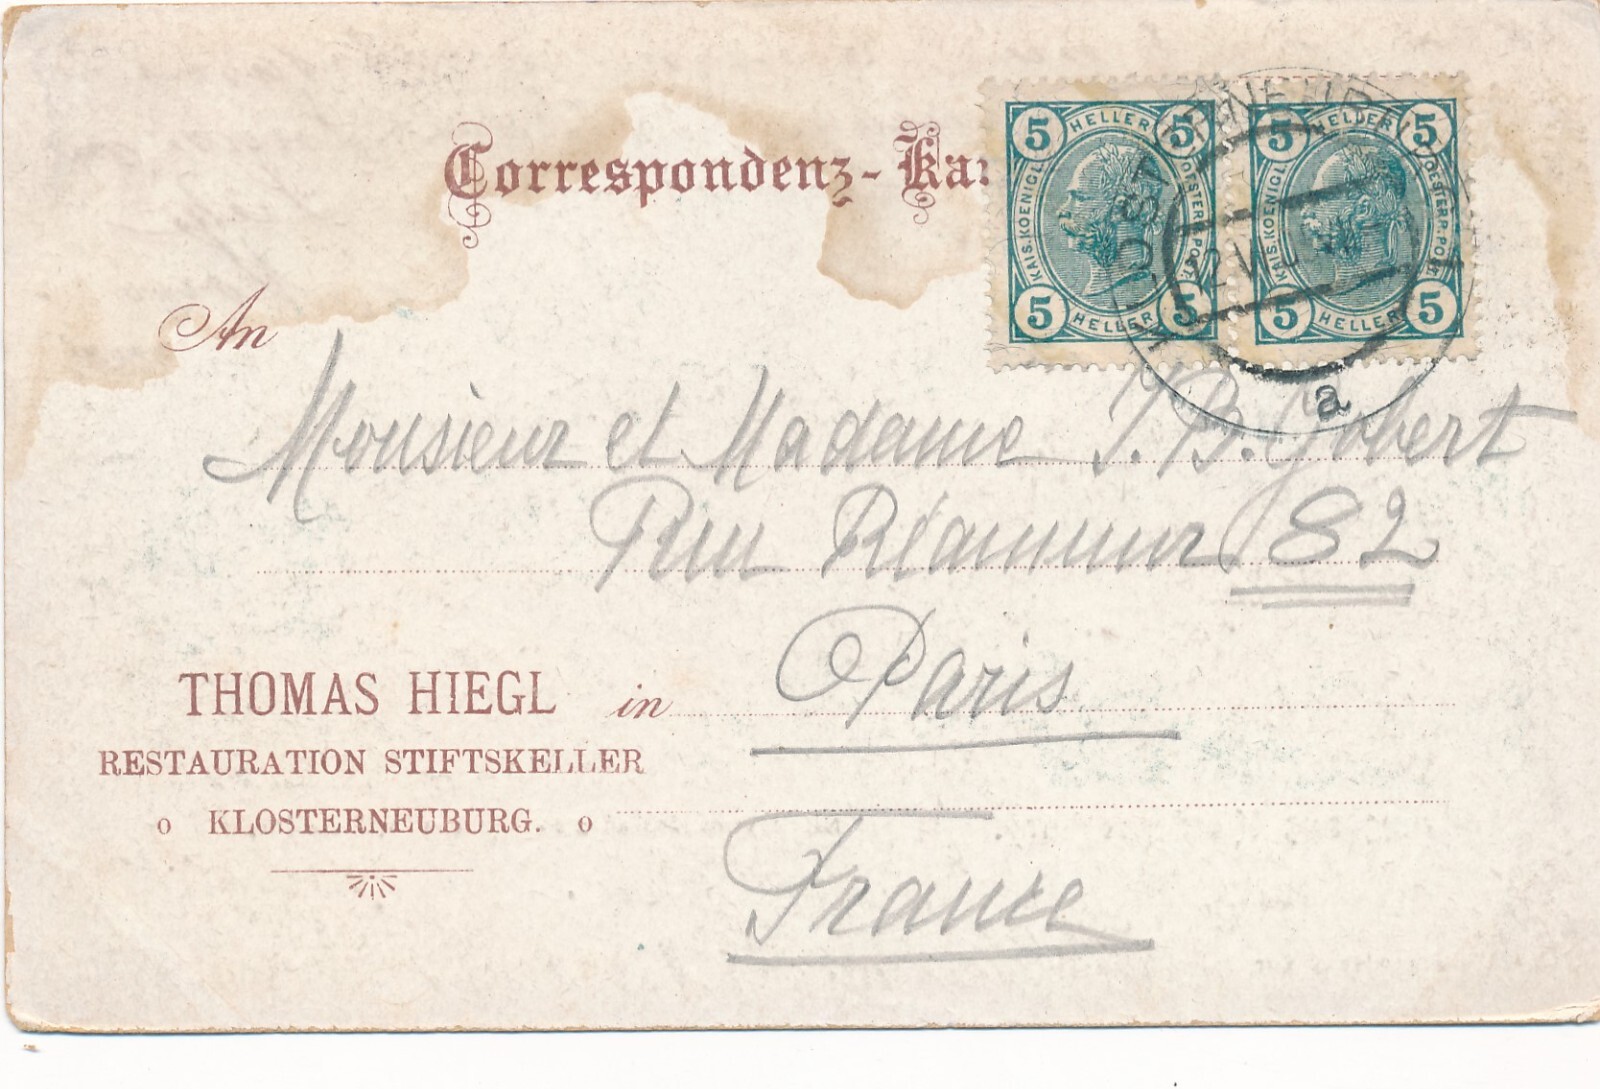 Correspondenz-Kar
5 HELLER 5
KAIS. KOENIGL. OESTERR. POST.
5 HELLER 5
5 HELLER 5
KAIS. KOENIGL. OESTERR. POST.
5 HELLER 5
a
An
Monsieur et Madame J. B. Gobert
Rue Réaumur 82
THOMAS HIEGL
in Paris
RESTAURATION STIFTSKELLER
o KLOSTERNEUBURG. o
France